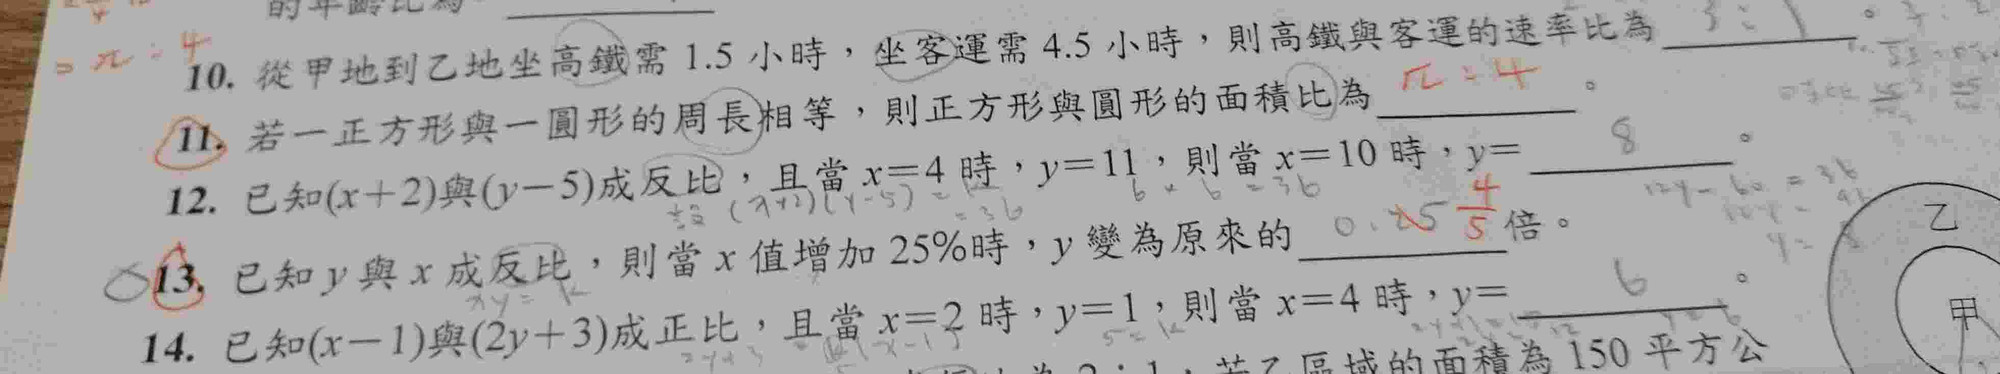 的年齡比為
= π : 4
10. 從甲地到乙地坐高鐵需 1.5 小時，坐客運需 4.5 小時，則高鐵與客運的速率比為 3 : 1 。
11. 若一正方形與一圓形的周長相等，則正方形與圓形的面積比為 π : 4 。
12. 已知(x+2)與(y-5)成反比，且當 x=4 時，y=11，則當 x=10 時，y= 8 。
設 (x+2)(y-5) = k
6 × 6 = 36
= 36
12y - 60 = 36
13. 已知 y 與 x 成反比，則當 x 值增加 25%時，y 變為原來的 4/5 倍。
xy = k
14. 已知(x-1)與(2y+3)成正比，且當 x=2 時，y=1，則當 x=4 時，y= 6 。
2y+3 = k(x-1)
5 = k
若乙區域的面積為 150 平方公
乙
甲